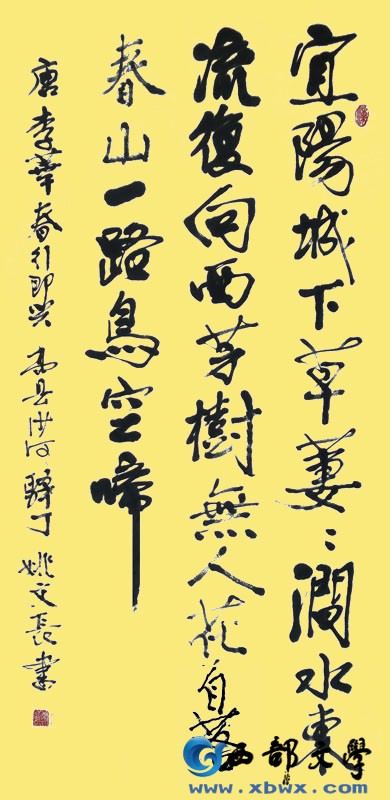 宜陽城下草萋〻澗水東
流復向西芳樹無人花自落
春山一路鳥空啼
唐李華春行即興 县洪河 驛丁 姚文長書
西部文學
www.xbwx.com